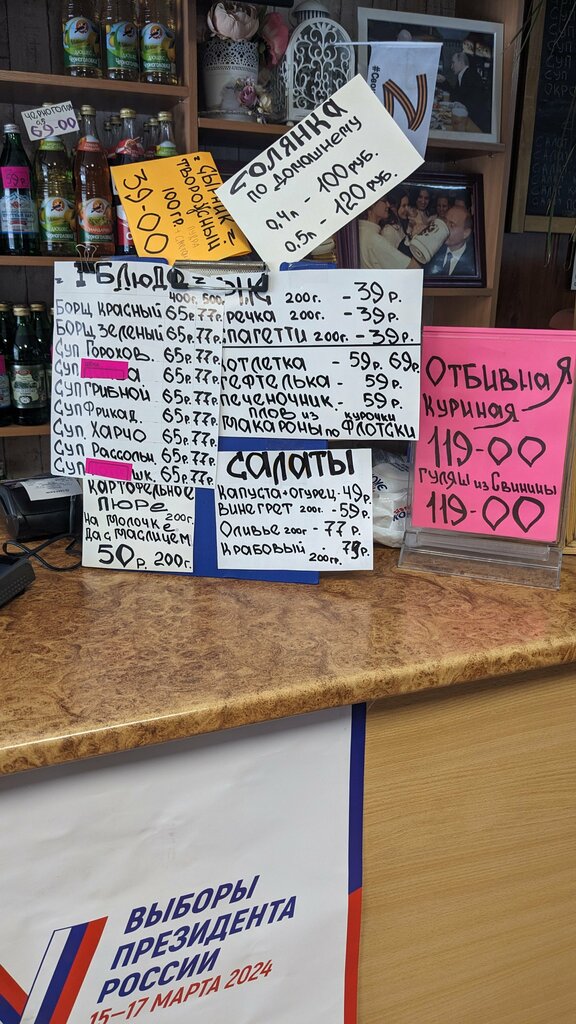 ЧЕРНОГОЛ
69-00
СЫРНИК
ТВОРОЖНЫЙ
100 гр.
39-00
СОЛЯНКА
ПО ДОМАШНЕМУ
0.4л - 100 РУБ.
0.5л - 120 РУБ.
Z
БЛЮД
400г. 500
БОРЩ КРАСНЫЙ 65р. 77р.
БОРЩ ЗЕЛЕНЫЙ 65р. 77р.
СУП ГОРОХОВ. 65р. 77р.
СУП 65р. 77р.
СУП ГРИБНОЙ 65р. 77р.
СУП ФРИКАД. 65р. 77р.
СУП ХАРЧО 65р. 77р.
СУП РАССОЛЬН. 65р. 77р.
СУП ШК. 65р. 77р.
200г. - 39р.
РЕЧКА 200г. - 39р.
ПАГЕТТИ 200г. - 39р.
ОТЛЕТКА - 59р. 69р.
ЕФТЕЛЬКА - 59р.
ПЕЧЕНОЧНИК - 59р.
ПЛОВ ИЗ КУРОЧКИ
МАКАРОНЫ ПО ФЛОТСКИ
КАРТОФЕЛЬНОЕ
ПЮРЕ
НА МОЛОЧКЕ
ДА С МАСЛИЦЕМ
50р. 200г.
САЛАТЫ
КАПУСТА+ОГУРЕЦ - 49р.
ВИНЕГРЕТ 200г. - 59р.
ОЛИВЬЕ 200г. - 77р.
КРАБОВЫЙ 200г. - 79р.
ОТБИВНАЯ
КУРИНАЯ
119-00
ГУЛЯШ ИЗ СВИНИНЫ
119-00
ВЫБОРЫ
ПРЕЗИДЕНТА
РОССИИ
15–17 МАРТА 2024